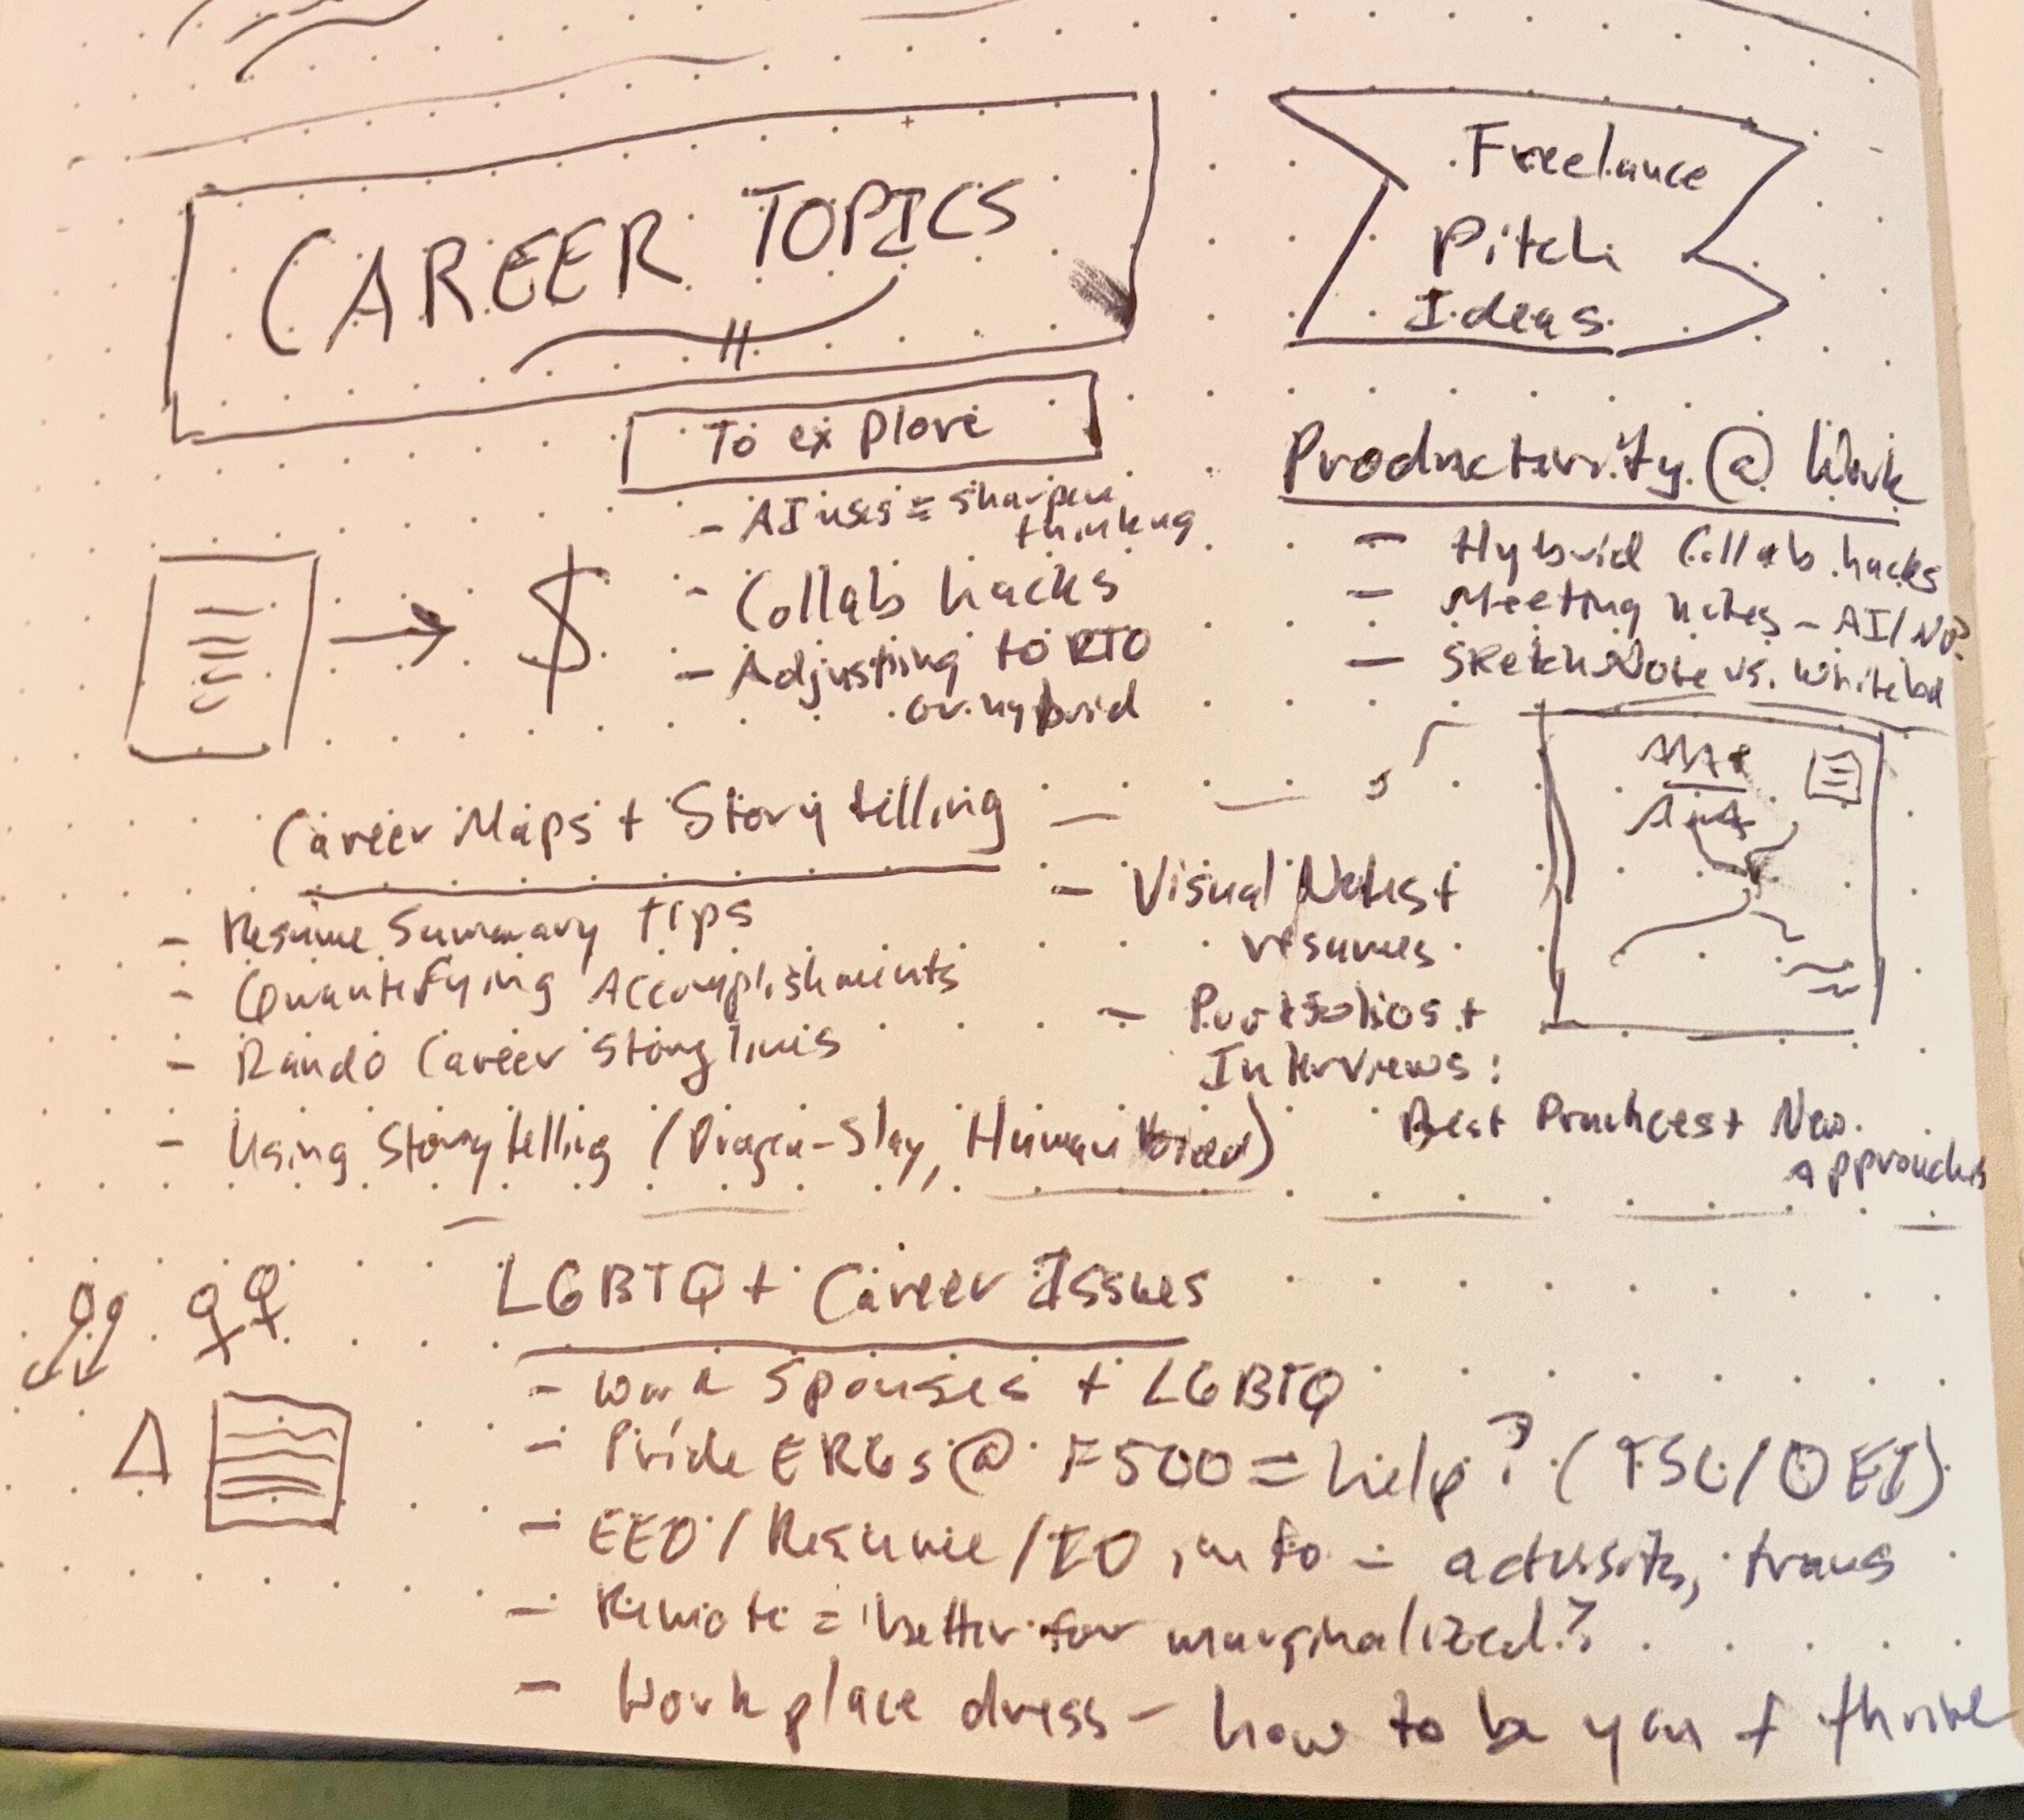 CAREER TOPICS
Freelance
Pitch
Ideas
To explore
- AI uses = sharpen
thinking
- Collab hacks
- Adjusting to RTO
or hybrid
Productivity @ Work
- Hybrid Collab hacks
- Meeting notes - AI/No?
- SketchNote vs. whitebd
$
Career Maps + Storytelling
- Resume Summary tips
- Quantifying Accomplishments
- Rando Career Storylines
- Using Storytelling (Dragon-Slay, Human
- Visual Notes +
resumes
- Portfolios +
Interviews:
Best Practices + New
Approaches
LGBTQ+ Career Issues
- Work Spouses + LGBTQ
- Pride ERGs @ F500 = help? (
- EEO / Resume / info - trans
- Remote = better for marginalized?
- Workplace dress - how to be you + thrive